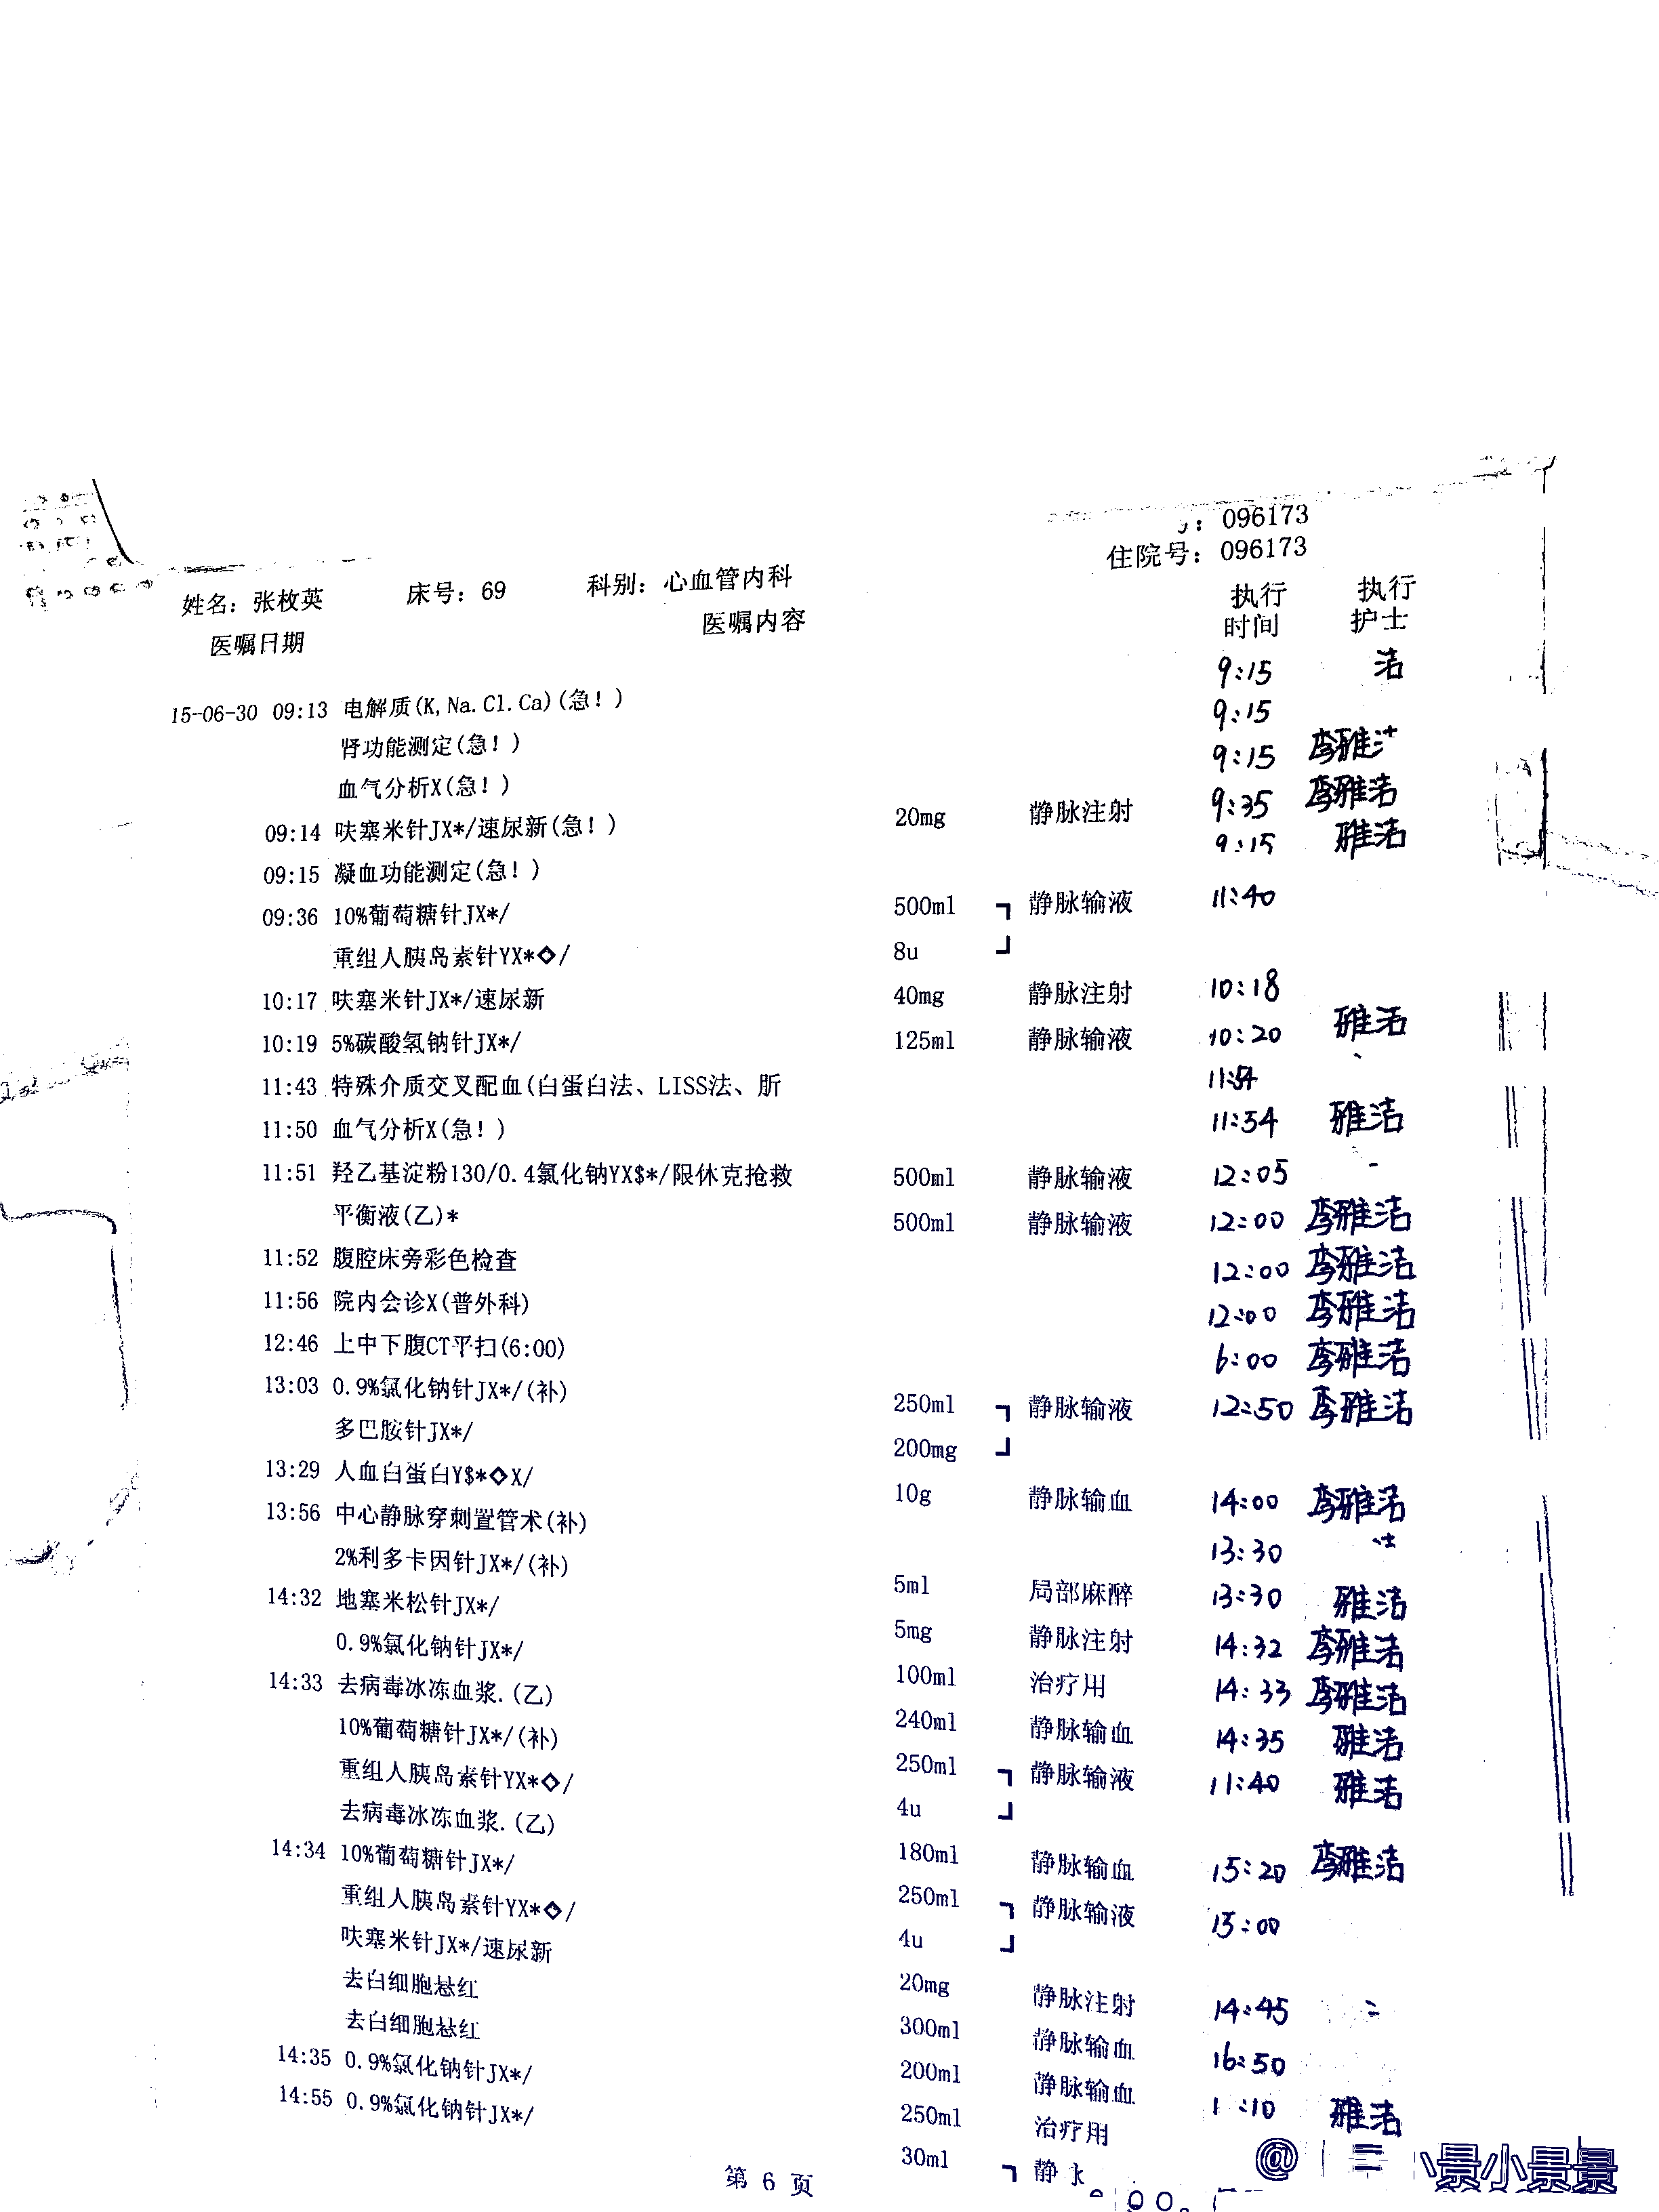 ：096173
住院号：096173
姓名：张枚英 床号：69 科别：心血管内科 执行 执行
医嘱日期 医嘱内容 时间 护士
15-06-30 09:13 电解质(K,Na.Cl.Ca)(急！) 9:15 洁
肾功能测定(急！) 9:15
血气分析X(急！) 9:15 李雅
09:14 呋塞米针JX*/速尿新(急！) 20mg 静脉注射 9:35 李雅洁
09:15 凝血功能测定(急！) 9:15 雅洁
09:36 10%葡萄糖针JX*/ 500ml ┐ 静脉输液 11:40
重组人胰岛素针YX*◇/ 8u ┘
10:17 呋塞米针JX*/速尿新 40mg 静脉注射 10:18
10:19 5%碳酸氢钠针JX*/ 125ml 静脉输液 10:20 雅洁
11:43 特殊介质交叉配血(白蛋白法、LISS法、 11:54
11:50 血气分析X(急！) 11:54 雅洁
11:51 羟乙基淀粉130/0.4氯化钠YX$*/限休克抢救 500ml 静脉输液 12:05
平衡液(乙)* 500ml 静脉输液 12:00 李雅洁
11:52 腹腔床旁彩色检查 12:00 李雅洁
11:56 院内会诊X(普外科) 12:00 李雅洁
12:46 上中下腹CT平扫(6:00) 6:00 李雅洁
13:03 0.9%氯化钠针JX*/(补) 250ml ┐ 静脉输液 12:50 李雅洁
多巴胺针JX*/ 200mg ┘
13:29 人血白蛋白Y$*◇X/ 10g 静脉输血 14:00 李雅洁
13:56 中心静脉穿刺置管术(补) 13:30
2%利多卡因针JX*/(补) 5ml 局部麻醉 13:30 雅洁
14:32 地塞米松针JX*/ 5mg 静脉注射 14:32 李雅洁
0.9%氯化钠针JX*/ 100ml 治疗用 14:33 李雅洁
14:33 去病毒冰冻血浆.(乙) 240ml 静脉输血 14:35 雅洁
10%葡萄糖针JX*/(补) 250ml ┐ 静脉输液 11:40 雅洁
重组人胰岛素针YX*◇/ 4u ┘
去病毒冰冻血浆.(乙) 180ml 静脉输血 15:20 李雅洁
14:34 10%葡萄糖针JX*/ 250ml ┐ 静脉输液 15:00
重组人胰岛素针YX*◇/ 4u ┘
呋塞米针JX*/速尿新 20mg 静脉注射 14:45
去白细胞悬红 300ml 静脉输血 16:50
去白细胞悬红 200ml 静脉输血 :10 雅洁
14:35 0.9%氯化钠针JX*/ 250ml 治疗用
14:55 0.9%氯化钠针JX*/ 30ml ┐ 静
第 6 页
@ 小景小景景